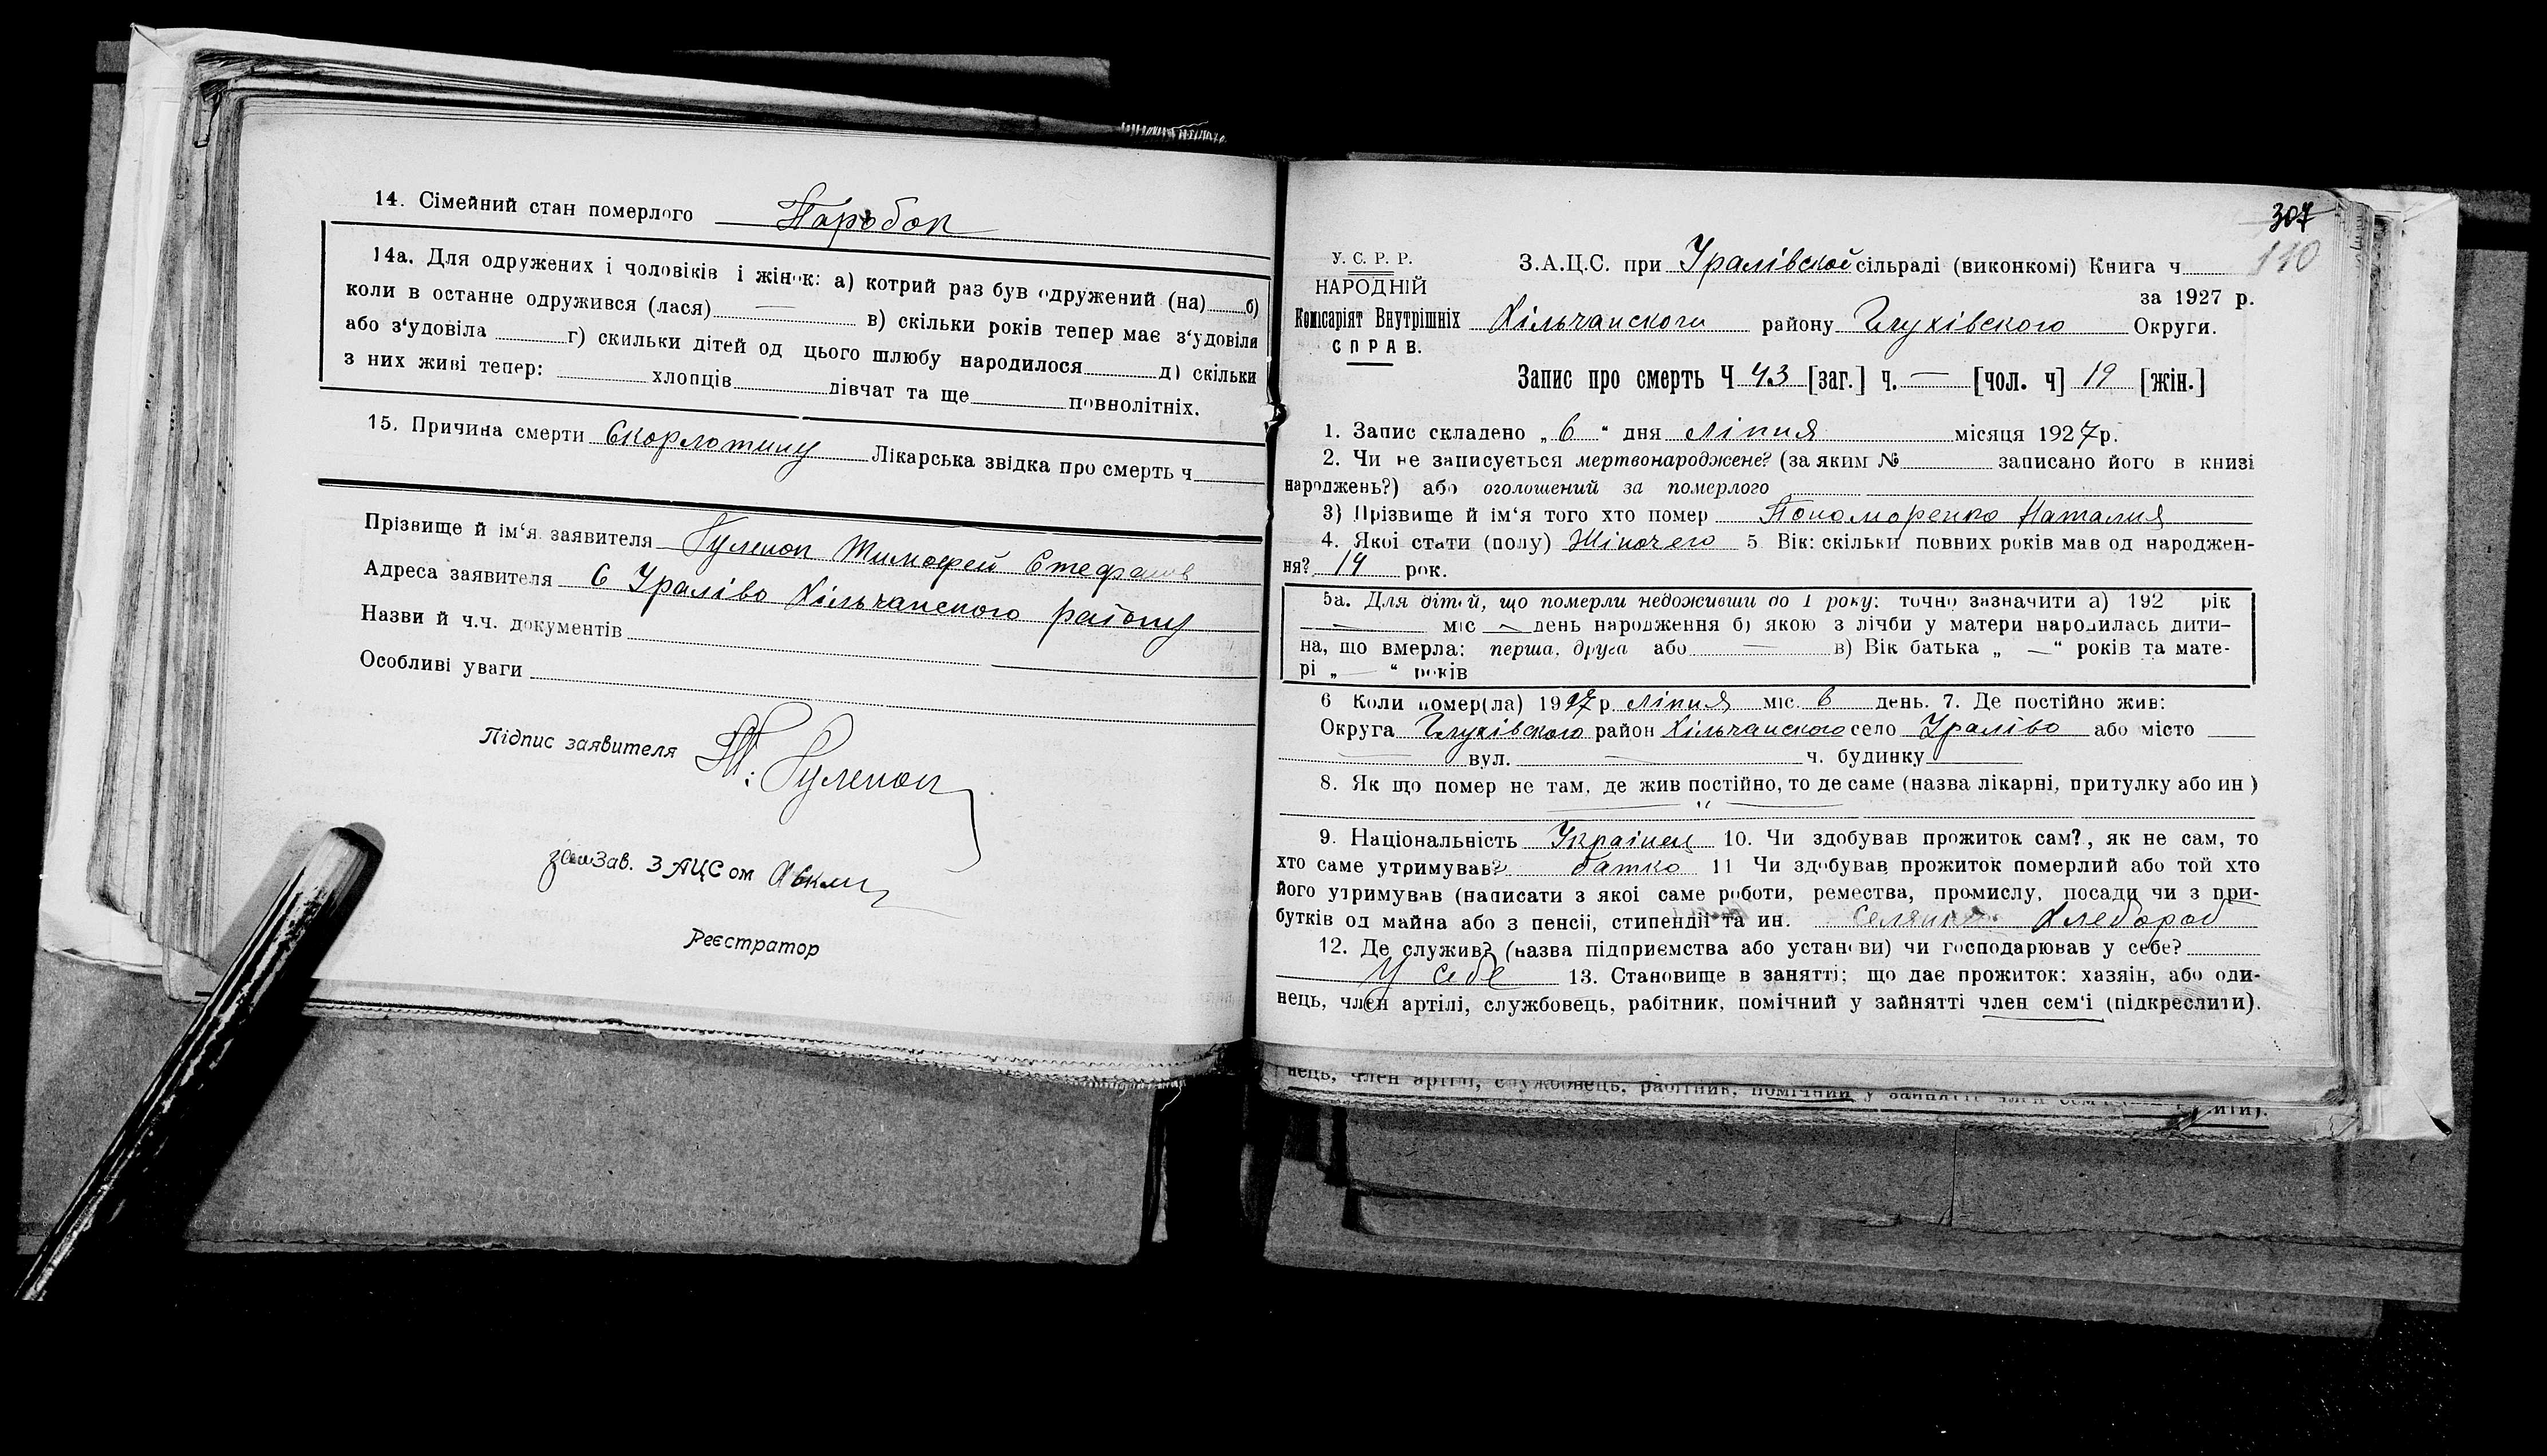 14. Сімейний стан померлого Паробок
14а. Для одружених і чоловіків і жінок: а) котрий раз був одружений (на) б)
коли в останне одружився (лася) — в) скільки років тепер має з‘удовіла
або з‘удовіла г) скильки дітей од цього шлюбу народилося д) скільки
з них живі тепер: хлопців дівчат та ще повнолітніх.
15. Причина смерти Скорлотину Лікарська звідка про смерть ч
Прізвище й ім‘я заявителя Гуленок Тимофей Стефанов
Адреса заявителя С Уралівo Хільчанского району
Назви й ч.ч. документів
Особливі уваги
Підпис заявителя Т. Гуленок
зам Зав. ЗАЦСом
Реєстратор
307
110
У. С. Р. Р.
НАРОДНІЙ
Комісаріят Внутрішніх
СПРАВ.
З.А.Ц.С. при Уралівской сільраді (виконкомі) Книга ч
за 1927 р.
Хільчанского району Глухівского Округи.
Запис про смерть Ч 43 [заг.] ч. — [чол. ч] 19 [жін.]
1. Запис складено „ 6 “ дня ліпня місяця 1927р.
2. Чи не записується мертвонароджене? (за яким № записано його в книзі
народжень?) або оголошений за померлого
3) Прізвище й ім‘я того хто помер Пономоренко Наталия
4. Якоі стати (полу) Жіночего 5 Вік: скільки повних років мав од народжен-
ня? 14 рок.
5а. Для дітей, що померли недоживши до 1 року: точно зазначити а) 192 рік
— міс — день народження б) якою з лічби у матери народилась дити-
на, що вмерла: перша, друга або — в) Вік батька „ — “ років та мате-
рі „ — “ років
6 Коли помер(ла) 1927р ліпня міс. 6 день. 7. Де постійно жив:
Округа Глухівского район Хільчанского село Уралівo або місто
вул. ч. будинку
8. Як що помер не там, де жив постійно, то де саме (назва лікарні, притулку або ин )
9. Національність Українец 10. Чи здобував прожиток сам?, як не сам, то
хто саме утримував? батко 11 Чи здобував прожиток померлий або той хто
його утримував (написати з якоі саме роботи, ремества, промислу, посади чи з при-
бутків од майна або з пенсіі, стипендіі та ин. Хлебороб
12. Де служив? (назва підприємства або установи) чи господарював у себе?
У себе 13. Становище в занятті; що дає прожиток: хазяін, або оди-
нець, член артілі, службовець, рабітник, помічний у зайнятті член сем‘і (підкреслити).
нець, член артілі, службовець, рабітник, помічний у зайнятті